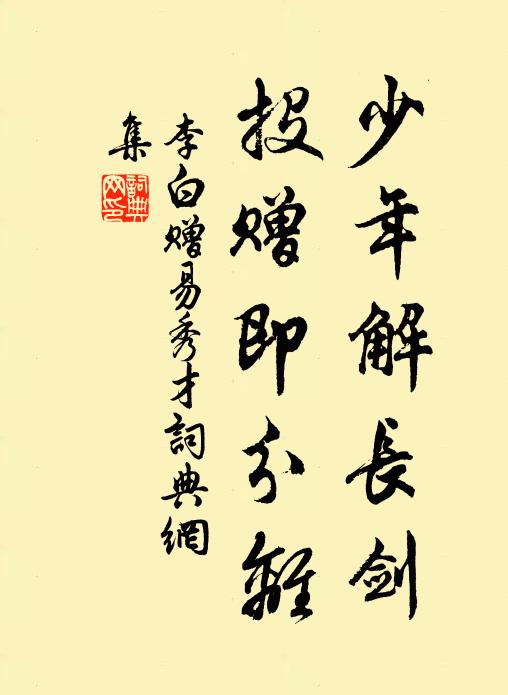 少年解長劍
投贈即分離
李白贈易秀才詞典網
集
詞典网印